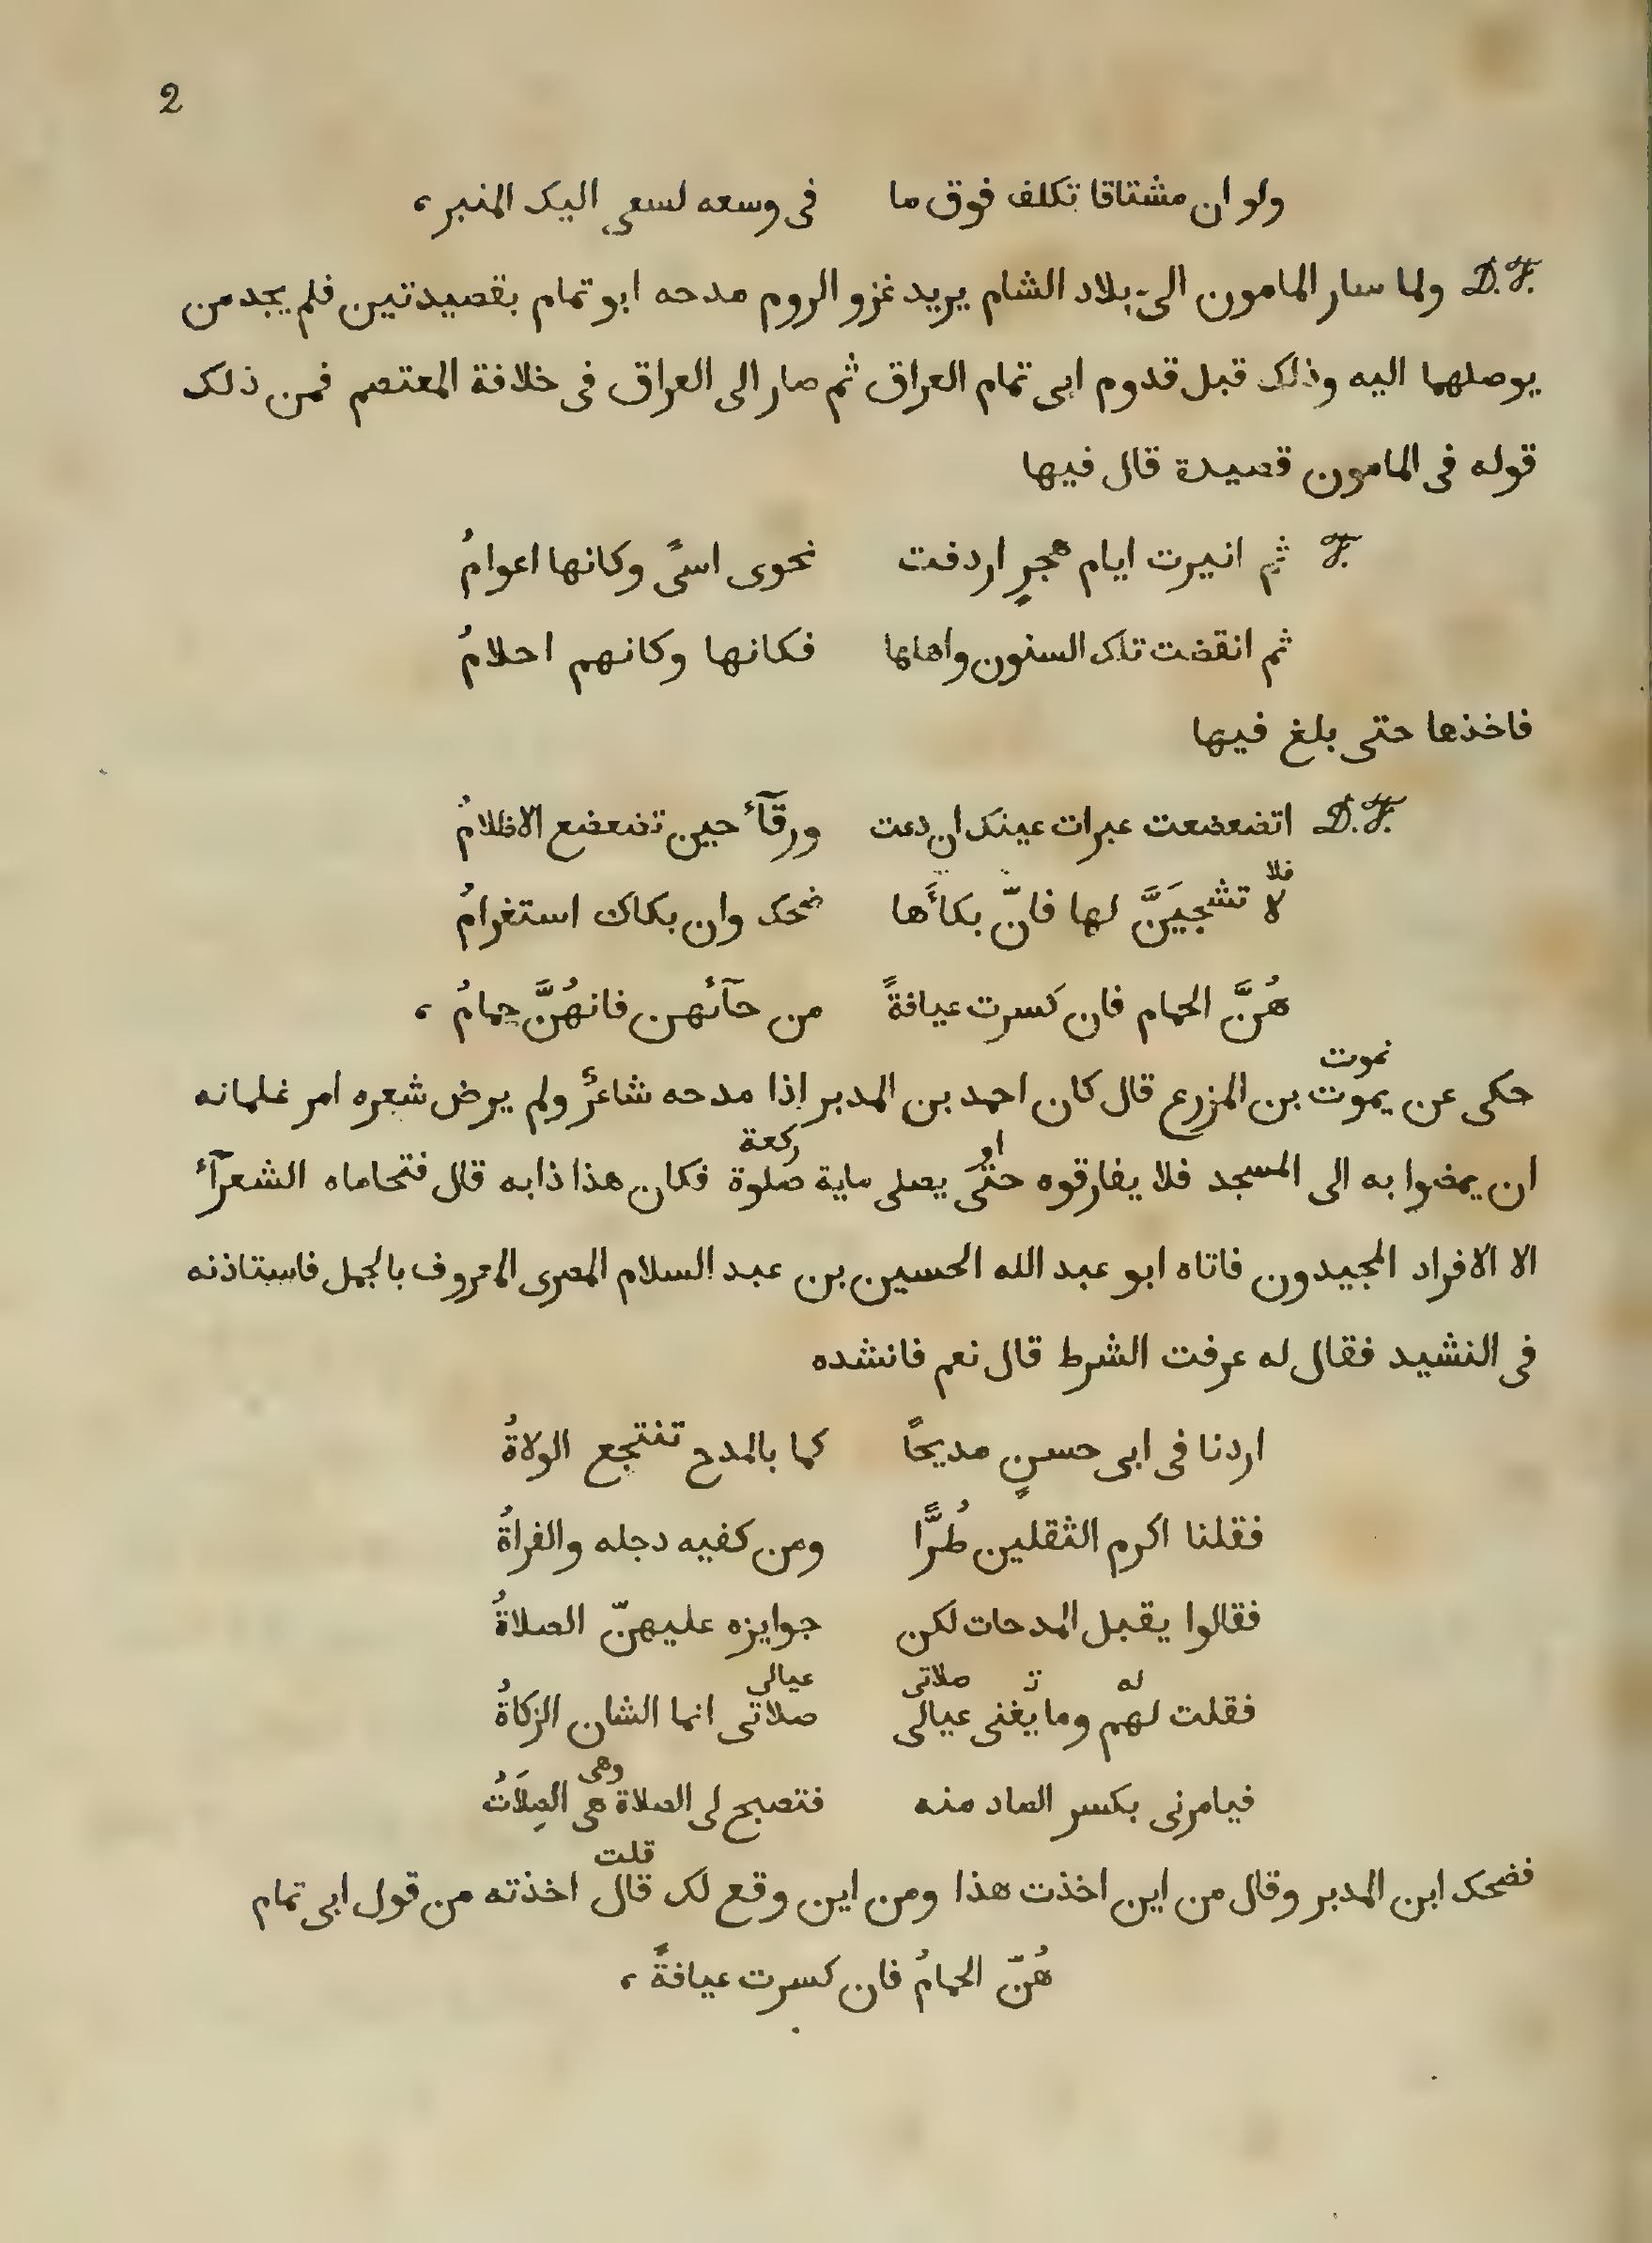 2
ولو ان مشتاقا تكلف فوق ما في وسعه لسعى اليك المنبر،
D.F. ولما سار المامون الى بلاد الشام يريد غزو الروم مدحه ابو تمام بقصيدتين فلم يجد من
يوصلهما اليه وذلك قبل قدوم ابى تمام العراق ثم صار الى العراق فى خلافة المعتصم فمن ذلك
قوله فى المامون قصيدة قال فيها
F. ثم انبرت ايام هجرٍ اردفت نحوى اسىً وكانها اعوامُ
ثم انقضت تلك السنون واهلها فكانها وكانهم احلامُ
فاخذها حتى بلغ فيها
D.F. اتضعضعت عبرات عينك ان دعت ورقآءُ حين تضعضع الاظلامُ
فلا
لا تشجيَنَّ لها فانّ بكاءَها ضحك وان بكاك استغرامُ
هُنَّ الحمام فان كسرت عيافةً من حآئهن فانهُنَّ حِمامُ ،
نموت
حكى عن يموت بن المزرع قال كان احمد بن المدبر اذا مدحه شاعرٌ ولم يرض شعره امر غلمانه
او ركعة
ان يمضوا به الى المسجد فلا يفارقوه حتى يصلى ماية صلوة فكان هذا دابه قال فتحاماه الشعرآءُ
الا الافراد المجيدون فاتاه ابو عبد الله الحسين بن عبد السلام المصرى المعروف بالجمل فاستاذنه
فى النشيد فقال له عرفت الشرط قال نعم فانشده
اردنا فى ابى حسنٍ مديحًا كما بالمدح تنتجع الولاةُ
فقلنا اكرم الثقلين طُرًّا ومن كفيه دجله والفراةُ
فقالوا يقبل المدحات لكن جوايزه عليهنّ الصلاةُ
له تـ صلاتى عيالى
فقلت لهم وما يغنى عيالى صلاتى انما الشان الزكاةُ
وهى
فيامرنى بكسر الصاد منه فتصبح لى الصلاة هى الصِلَاتُ
قلت
فضحك ابن المدبر وقال من اين اخذت هذا ومن اين وقع لك قال اخذته من قول ابى تمام
هُنّ الحمامُ فان كسرت عيافةً ،